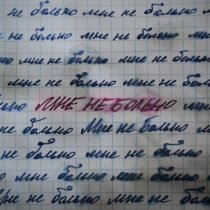 не больно мне не больно м
больно мне не больно мне
мне не больно мне не больно
не больно мне не больно
мне не больно мне не больно
больно МНЕ НЕ БОЛЬНО мне
не больно мне не больно
не больно Мне не больно
больно мне не больно мне
не больно мне не больно
Мне не больно мне не